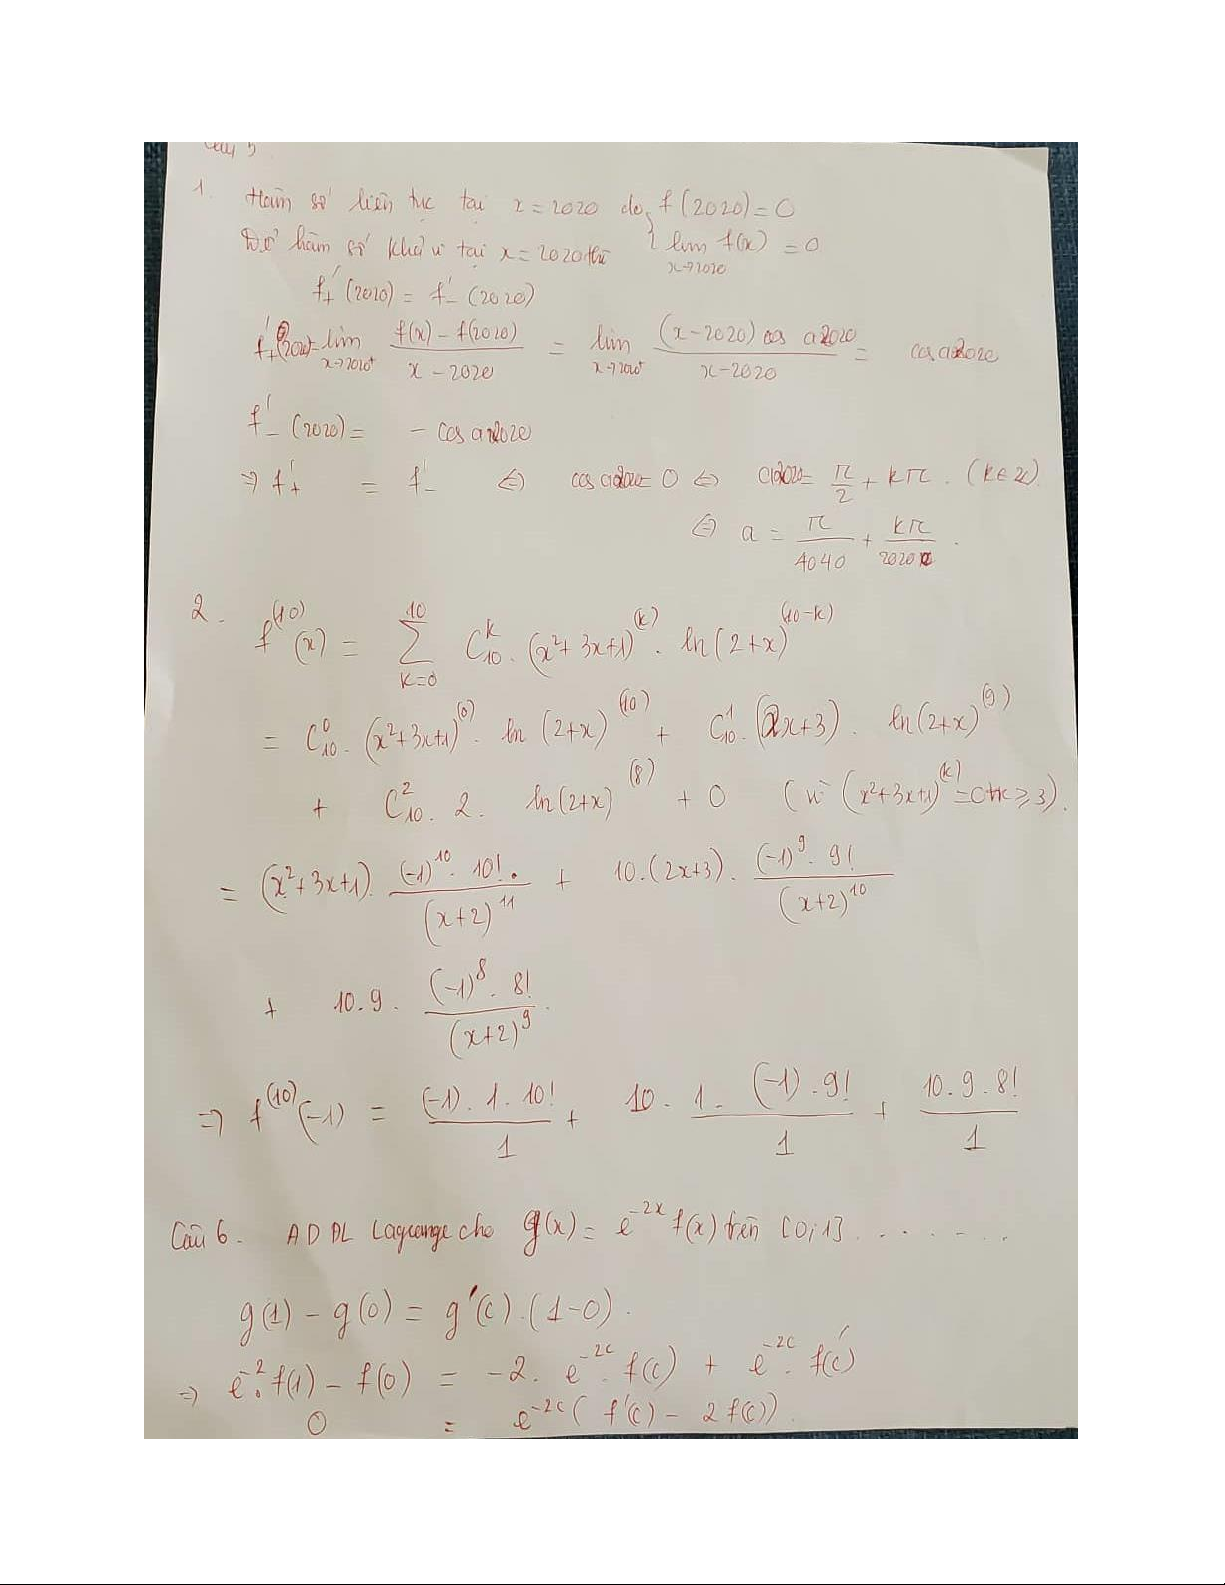 Câu 5
1. Hàm số liên tục tại x = 2020 do { f(2020) = 0
Để hàm số khả vi tại x = 2020 thì lim x→2020 f(x) = 0
f'₊(2020) = f'₋(2020)
f'₊(2020) = lim x→2020⁺ (f(x) - f(2020))/(x - 2020) = lim x→2020⁺ ((x-2020) cos a2020)/(x-2020) = cos a2020
f'₋(2020) = - cos a2020
⇒ f'₊ = f'₋ ⇔ cos a2020 = 0 ⇔ a2020 = π/2 + kπ. (k∈Z).
⇔ a = π/4040 + kπ/2020.
2. f⁽¹⁰⁾(x) = Σ_{k=0}^{10} C₁₀ᵏ. (x²+3x+1)⁽ᵏ⁾. ln(2+x)⁽¹⁰⁻ᵏ⁾
= C₁₀⁰. (x²+3x+1)⁽⁰⁾. ln(2+x)⁽¹⁰⁾ + C₁₀¹. (2x+3). ln(2+x)⁽⁹⁾
+ C₁₀². 2. ln(2+x)⁽⁸⁾ + 0 (vì (x²+3x+1)⁽ᵏ⁾ = 0 ∀k ≥ 3).
= (x²+3x+1). ((-1)¹⁰. 10!.)/(x+2)¹¹ + 10.(2x+3). ((-1)⁹. 9!)/(x+2)¹⁰
+ 10.9. ((-1)⁸. 8!)/(x+2)⁹.
⇒ f⁽¹⁰⁾(-1) = ((-1). 1. 10!)/1 + 10. 1. ((-1). 9!)/1 + (10. 9. 8!)/1
Câu 6. AD ĐL Lagrange cho g(x) = e⁻²ˣ f(x) trên [0;1] . . . . . . .
g(1) - g(0) = g'(c).(1-0).
⇒ e⁻².f(1) - f(0) = -2. e⁻²ᶜ. f(c) + e⁻²ᶜ. f(c)'
0 = e⁻²ᶜ( f'(c) - 2f(c)).